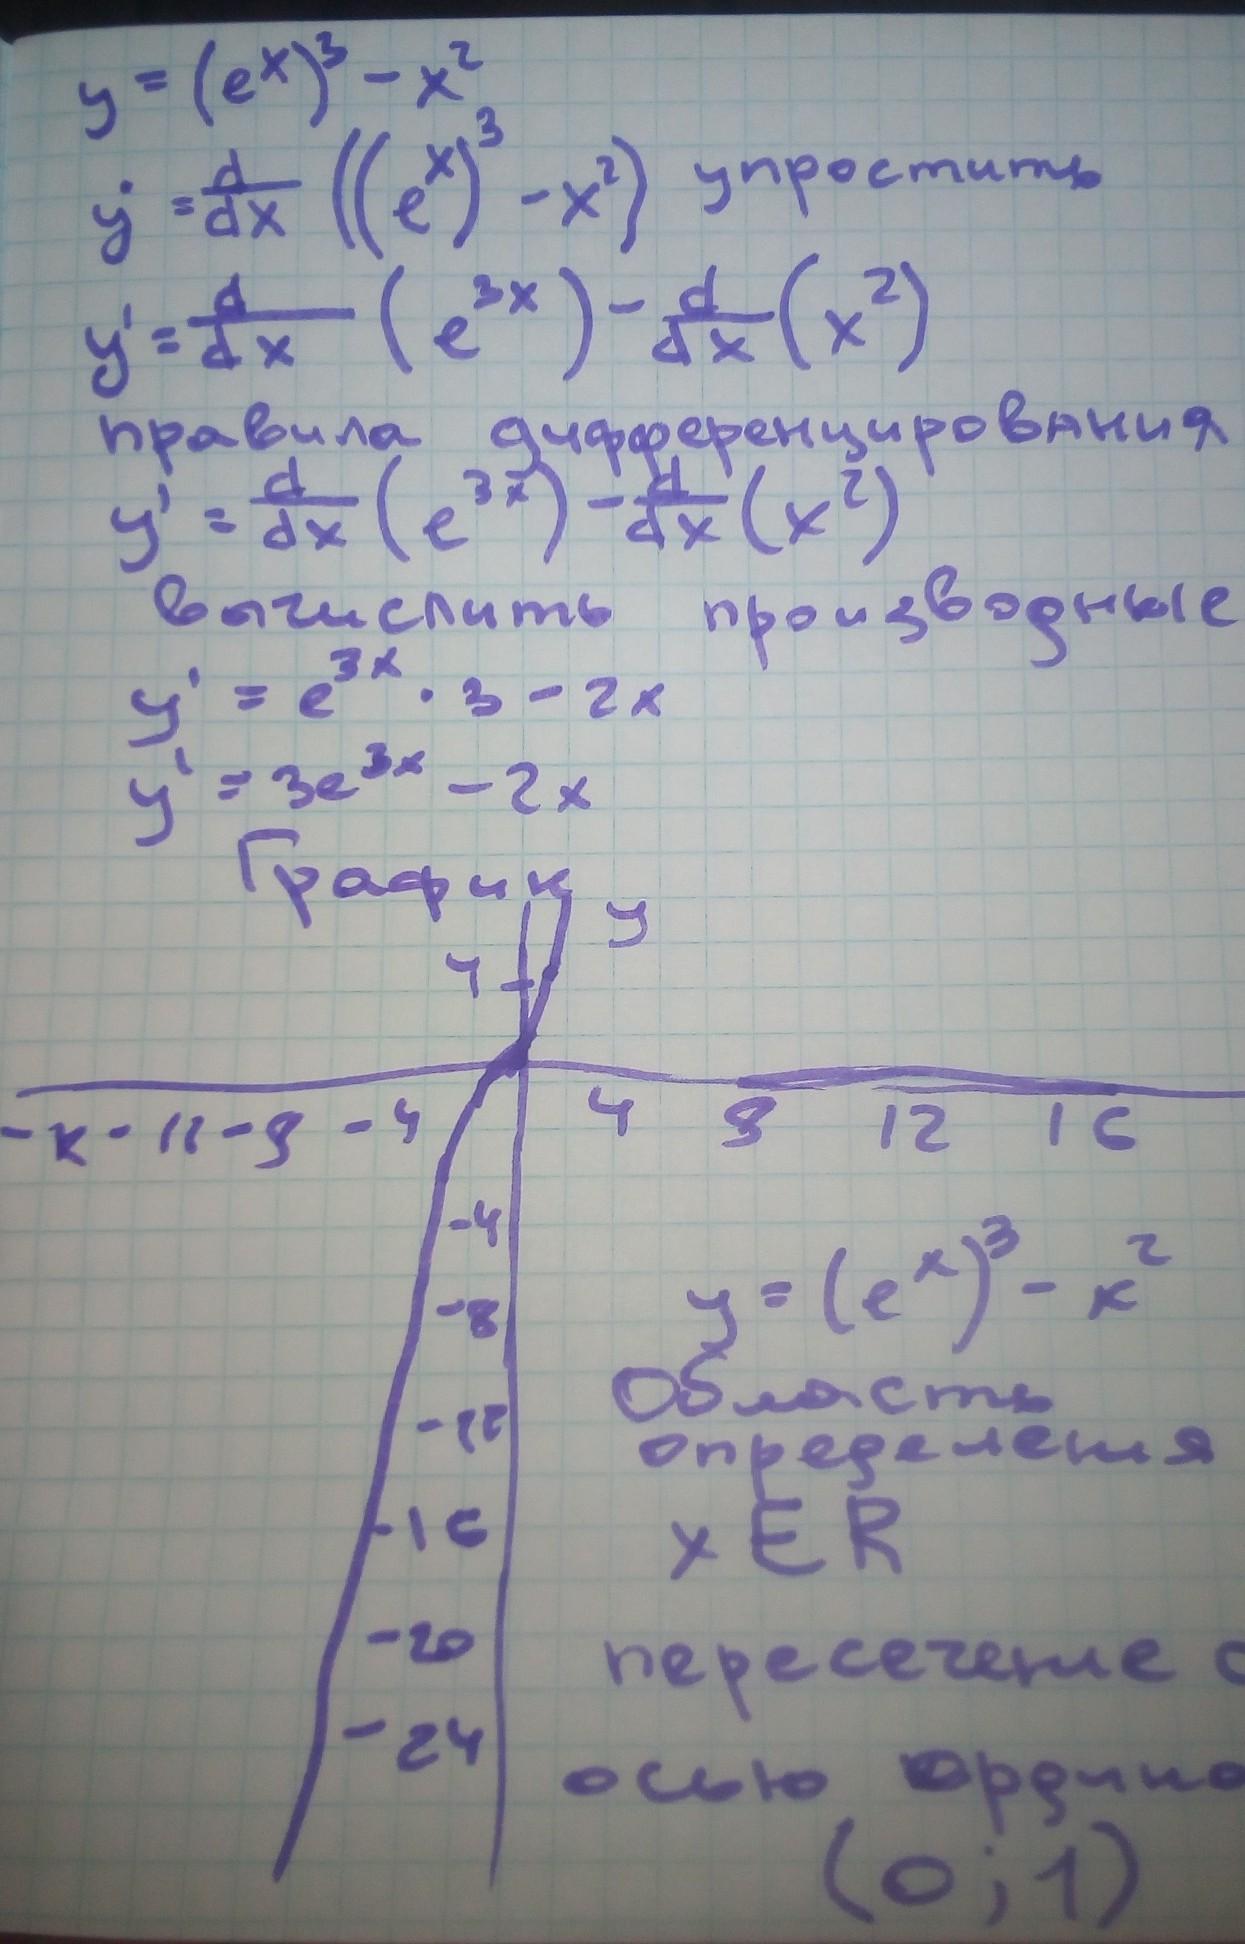 y = (e^x)^3 - x^2
y' = d/dx ((e^x)^3 - x^2) упростить
y' = d/dx (e^{3x}) - d/dx (x^2)
правила дифференцирования
y' = d/dx (e^{3x}) - d/dx (x^2)
вычислить производные
y' = e^{3x} · 3 - 2x
y' = 3e^{3x} - 2x
График
y
4
-x -12 -8 -4 4 8 12 16
-4
-8
-12
-16
-20
-24
y = (e^x)^3 - x^2
Область
определения
x ∈ R
пересечение с
осью ордина
(0; 1)